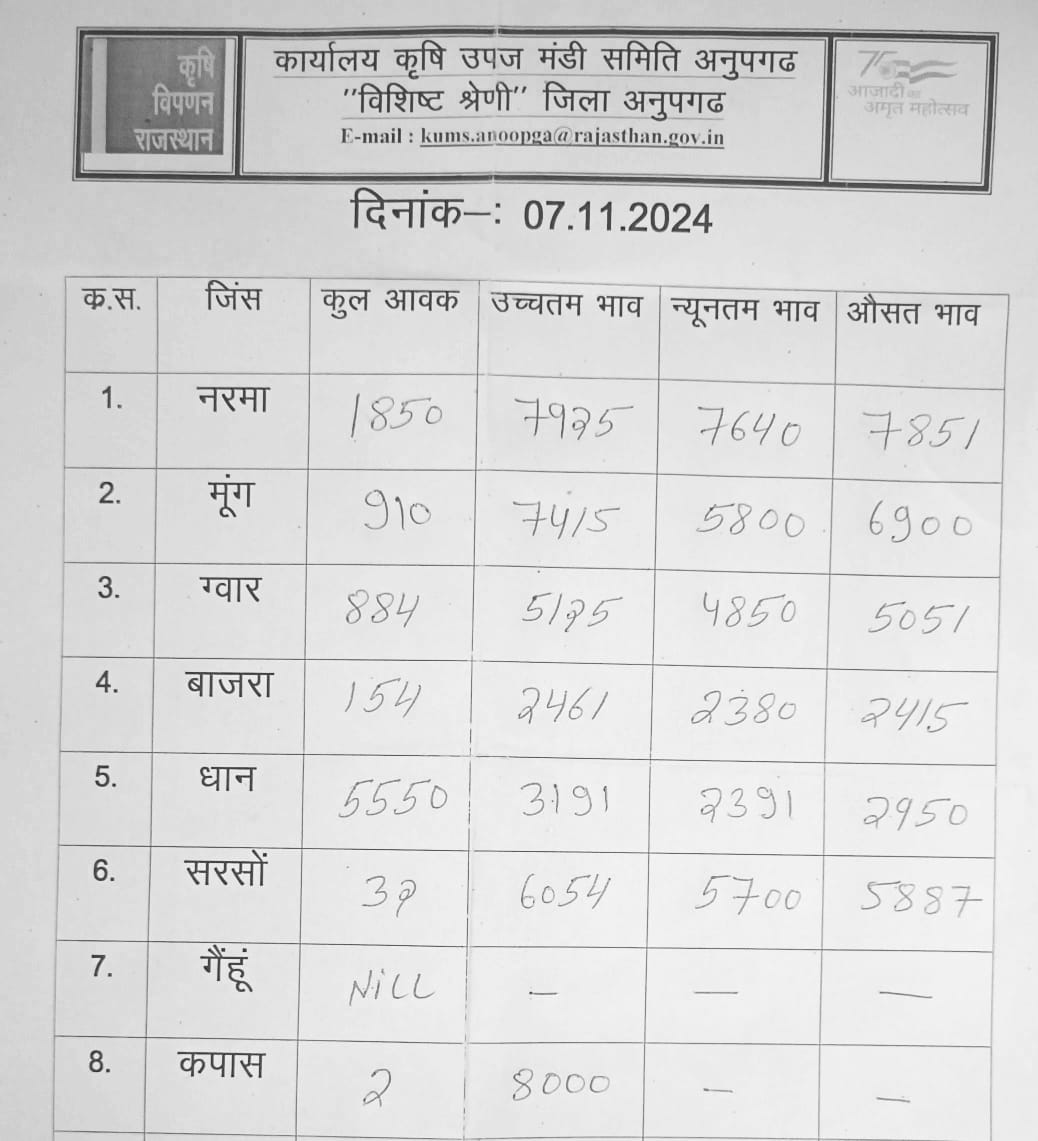 कृषि
विपणन
राजस्थान
कार्यालय कृषि उपज मंडी समिति अनुपगढ
"विशिष्ट श्रेणी" जिला अनुपगढ
E-mail : kums.anoopga@rajasthan.gov.in
75
आजादी का
अमृत महोत्सव
दिनांक–: 07.11.2024
क.स. जिंस कुल आवक उच्चतम भाव न्यूनतम भाव औसत भाव
1. नरमा 1850 7925 7640 7851
2. मूंग 910 7415 5800 6900
3. ग्वार 884 5125 4850 5051
4. बाजरा 154 2461 2380 2415
5. धान 5550 3191 2391 2950
6. सरसों 32 6054 5700 5887
7. गैंहूं NiLL — — —
8. कपास 2 8000 — —